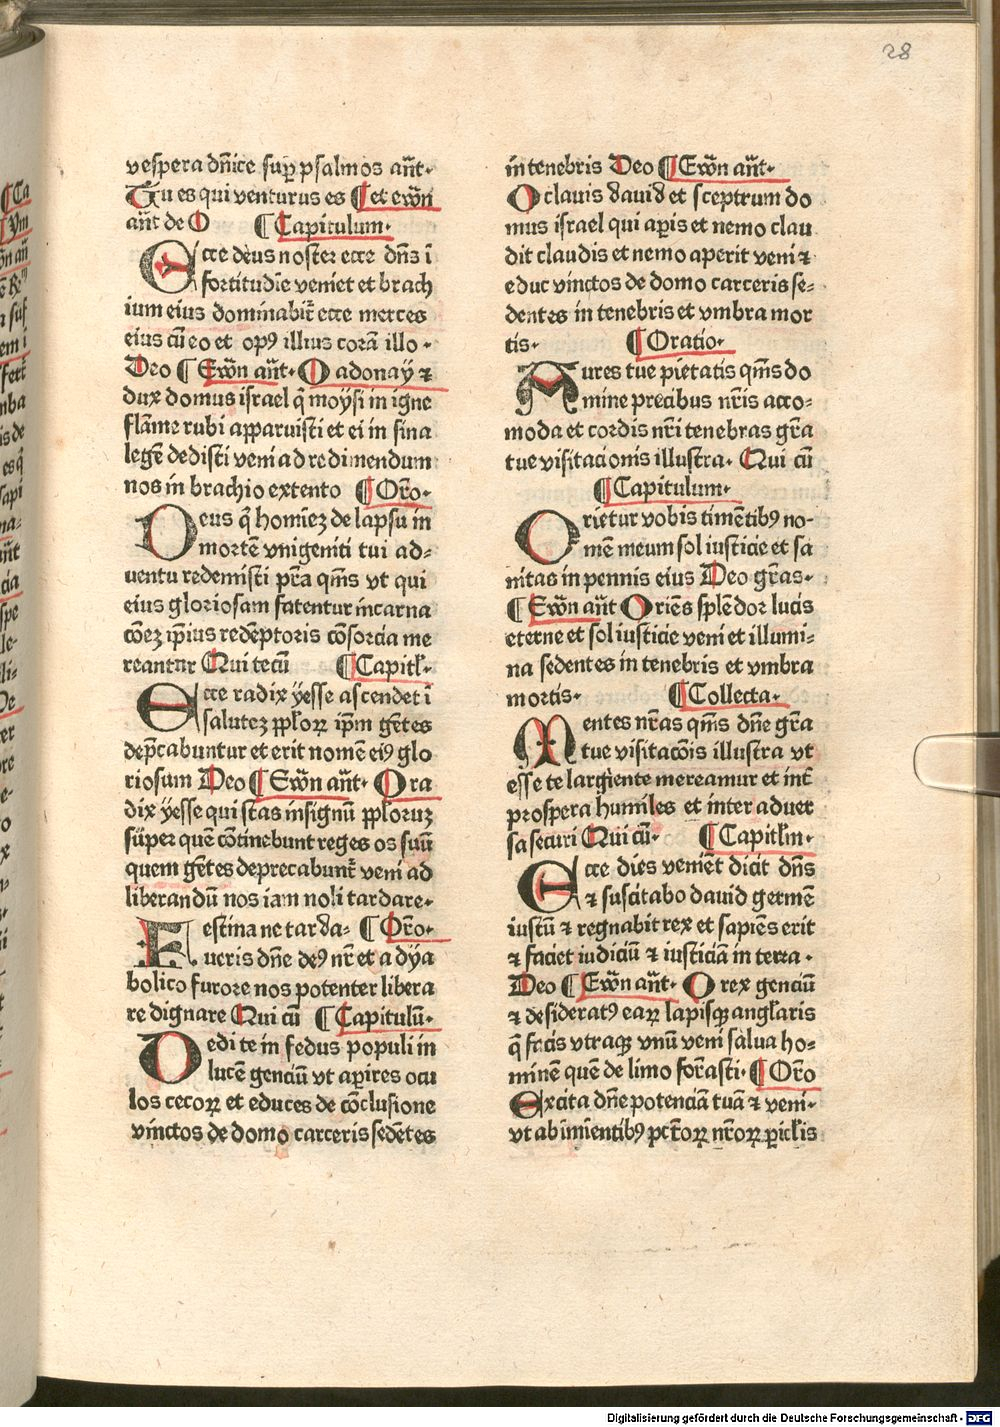 28
vespera dn̄ice suꝑ psalmos an̄t·
Tu es qui venturus es ¶ et ew̄n
an̄t de O ¶ Capitulum·
Ecce deus noster ecce dn̄s ī
fortitudīe veniet et brach
ium eius dominabit᷑ ecce merces
eius cū eo et opꝰ illius corā illo·
Deo ¶ Ew̄n an̄t· O adonaÿ ⁊
dux domus israel q̄ moÿsi in igne
flāme rubi apparuisti et ei in sina
legē dedisti veni ad redimendum
nos in brachio extento ¶ Or̄o·
Deus q̄ homiēz de lapsu in
mortē vnigeniti tui ad-
ventu redemisti pr̄a qm̄s vt qui
eius gloriosam fatentur incarna
cōez ip̄ius redēptoris cōsorcia me
reantnr Qui tecū ¶ Capitl̄·
Ecce radix ÿesse ascendet ī
salutez pp̄loꝝ ip̄m gētes
dep̄cabuntur et erit nomē eiꝰ glo
riosum Deo ¶ Ew̄n an̄t· O ra
dix ÿesse qui stas insignū pp̄loruz
sūper quē cōtinebunt reges os suū
quem gētes deprecabunt᷑ veni ad
liberandū nos iam noli tardare·
Festina ne tarda= ¶ Or̄o·
ueris dn̄e deꝰ nr̄ et a dÿa
bolico furore nos potenter libera
re dignare Qui cū ¶ Capitulū·
Dedi te in fedus populi in
lucē genciū vt aꝑires ocu
los cecoꝝ et educes de cōclusione
vinctos de domo carceris sedētes
in tenebris Deo ¶ Ew̄n an̄t·
O clauis dauid et sceptrum do
mus israel qui aꝑis et nemo clau
dit claudis et nemo aperit veni ⁊
educ vinctos de domo carceris se=
dentes in tenebris et vmbra mor
tis· ¶ Oratio·
Aures tue pietatis qm̄s do
mine precibus nr̄is acco=
moda et cordis nr̄i tenebras gr̄a
tue visitacionis illustra· Qui cū
¶ Capitulum·
Orietur vobis timētibꝰ no-
mē meum sol iusticie et sa
nitas in pennis eius Deo gr̄as·
¶ Ew̄n an̄t O riēs splēdor lucis
eterne et sol iusticie veni et illumi=
na sedentes in tenebris et vmbra
mortis· ¶ Collecta·
Mentes nr̄as qm̄s dn̄e gr̄a
tue visitacōis illustra vt
esse te largiente mereamur et int̄
prospera humiles et inter aduer
sa securi Qui cū· ¶ Capitl̄m·
Ecce dies veniēt dicit dn̄s
⁊ suscitabo dauid germē
iustū ⁊ regnabit rex et sapiēs erit
⁊ faciet iudiciū ⁊ iusticiā in terra·
Deo ¶ Ew̄n an̄t· O rex genciū
⁊ desideratꝰ eaꝝ lapisqꝫ angl̄aris
q̄ facis vtraqꝫ vnū veni salua ho=
minē quē de limo formasti· ¶ Or̄o
Excita dn̄e potenciā tuā ⁊ veni·
vt ab iminentibꝰ pctōꝝ nr̄oꝝ ꝑicl̄is
Digitalisierung gefördert durch die Deutsche Forschungsgemeinschaft - DFG